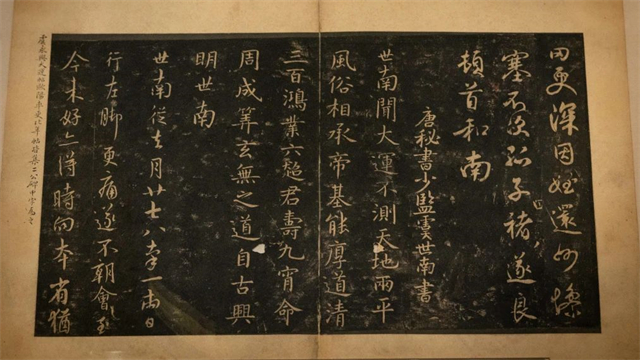 更深因姪還州慘
塞不次孤子褚遂良
頓首和南
唐秘書少監虞世南書
世南聞大運不測天地兩平
風俗相承帝基能厚道清
三百鴻業六超君壽九霄命
周成算玄無之道自古興
明世南
世南從去月廿七八率一兩日
行左脚更痛遂不朝會至
今未好亦得時向本省猶